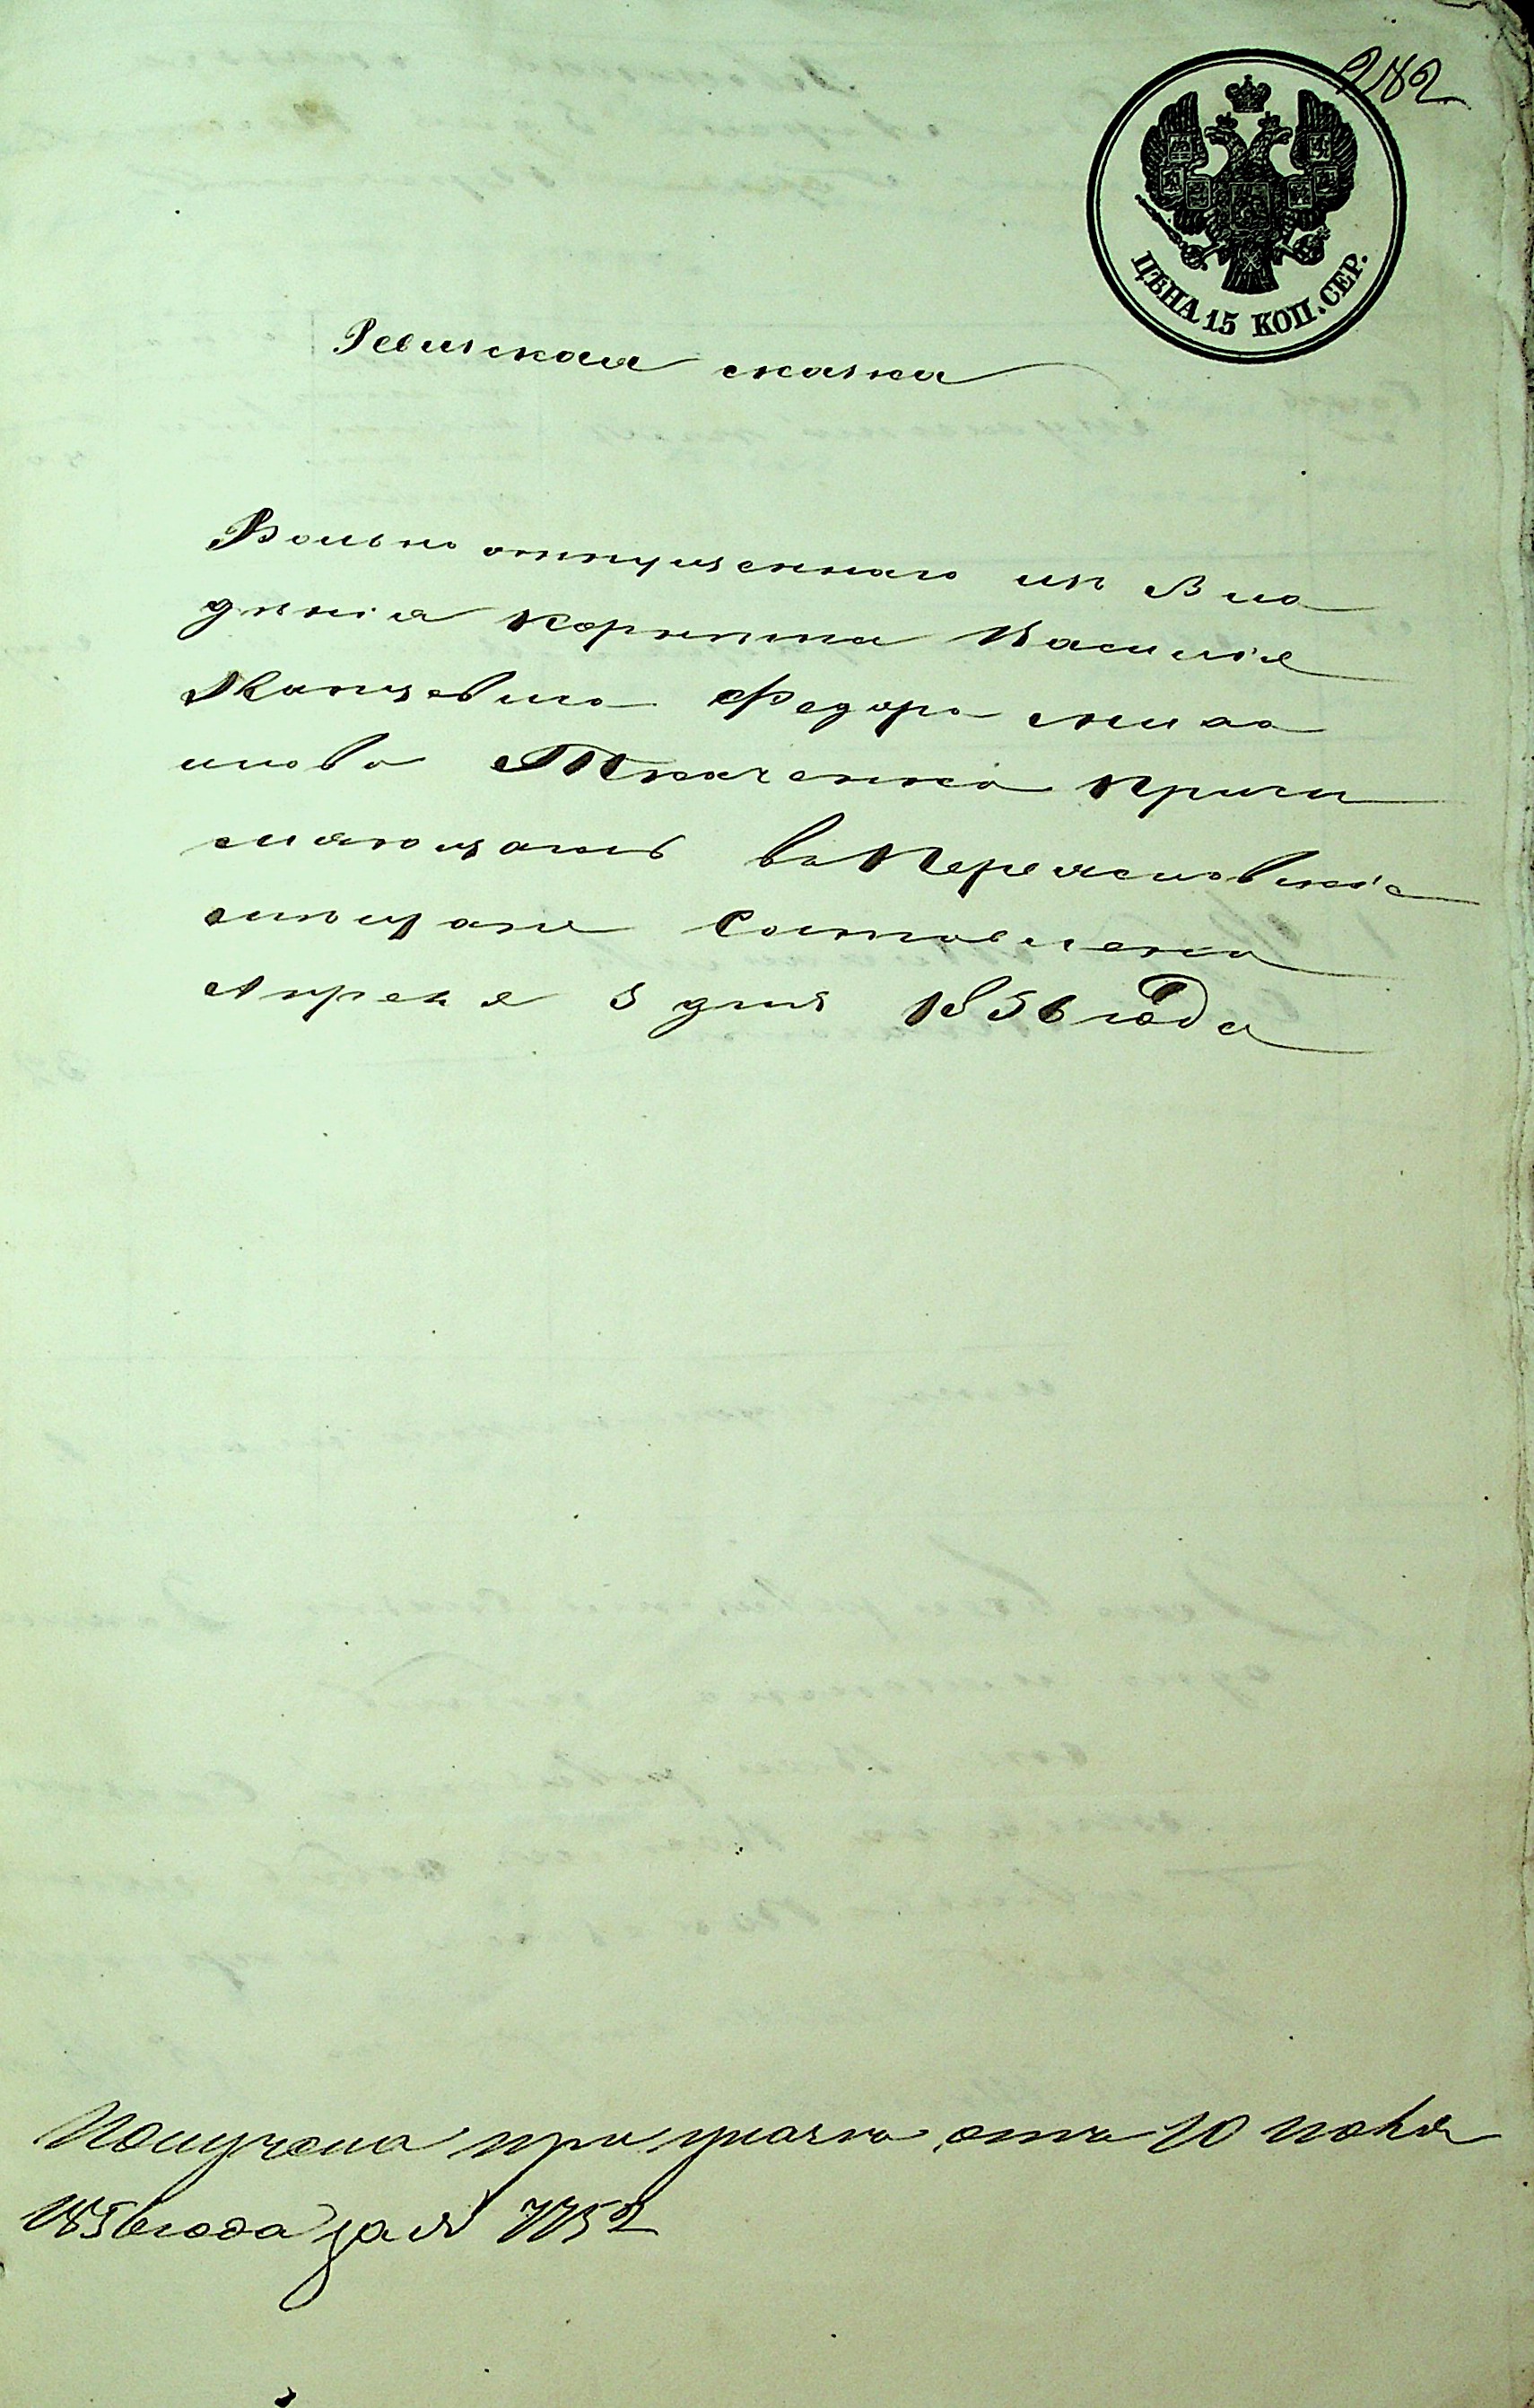 282
ЦѢНА 15 КОП. СЕР.
Ревизская сказка
Вольно отпущеннаго изъ Вла
дѣнія Корнета Василія
Федора Миха
лова Ткаченка причи
сляющагось въ Переясловскіе
мѣщане Составлена
Апреля 3 дня 1856 года
Получена при указѣ отъ 10 ноя
1856 года за № 7752